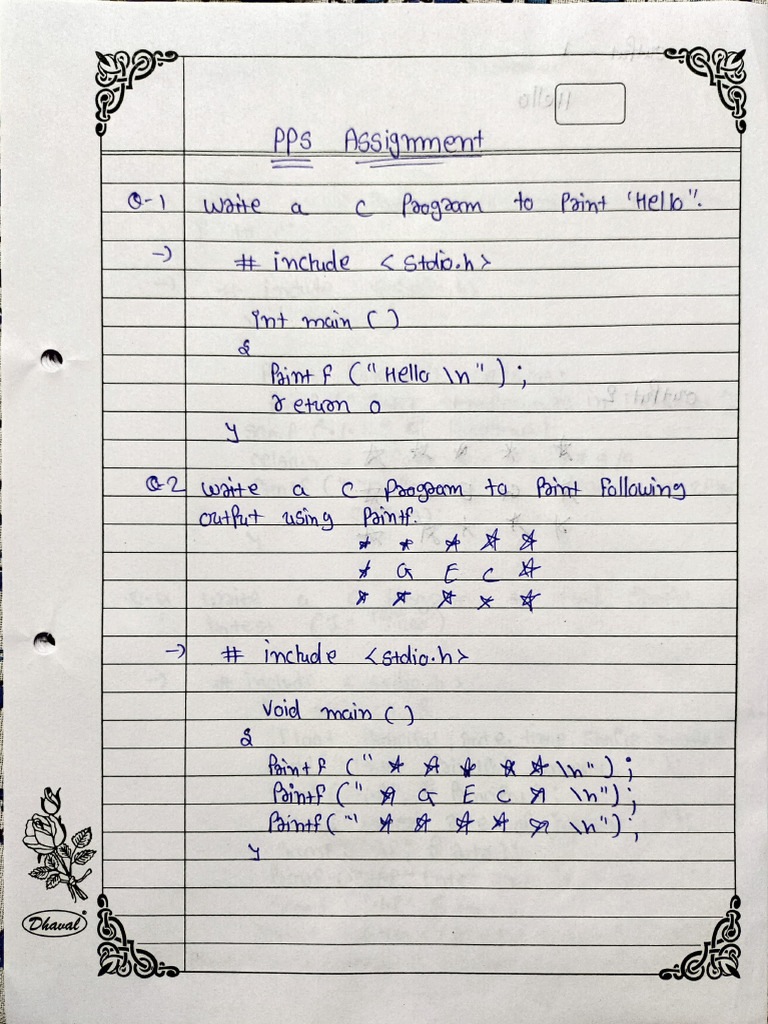 PPS Assignment
Q-1 Write a C Program to Print "Hello".
→ # include <stdio.h>
int main ( )
{
Printf ("Hello \n");
return 0
}
Q-2 Write a C Program to Print Following
output using Printf.
* * * * *
* G E C *
* * * * *
→ # include <stdio.h>
Void main ( )
{
Printf (" * * * * * \n");
Printf (" * G E C * \n");
Printf (" * * * * * \n");
}
Dhaval